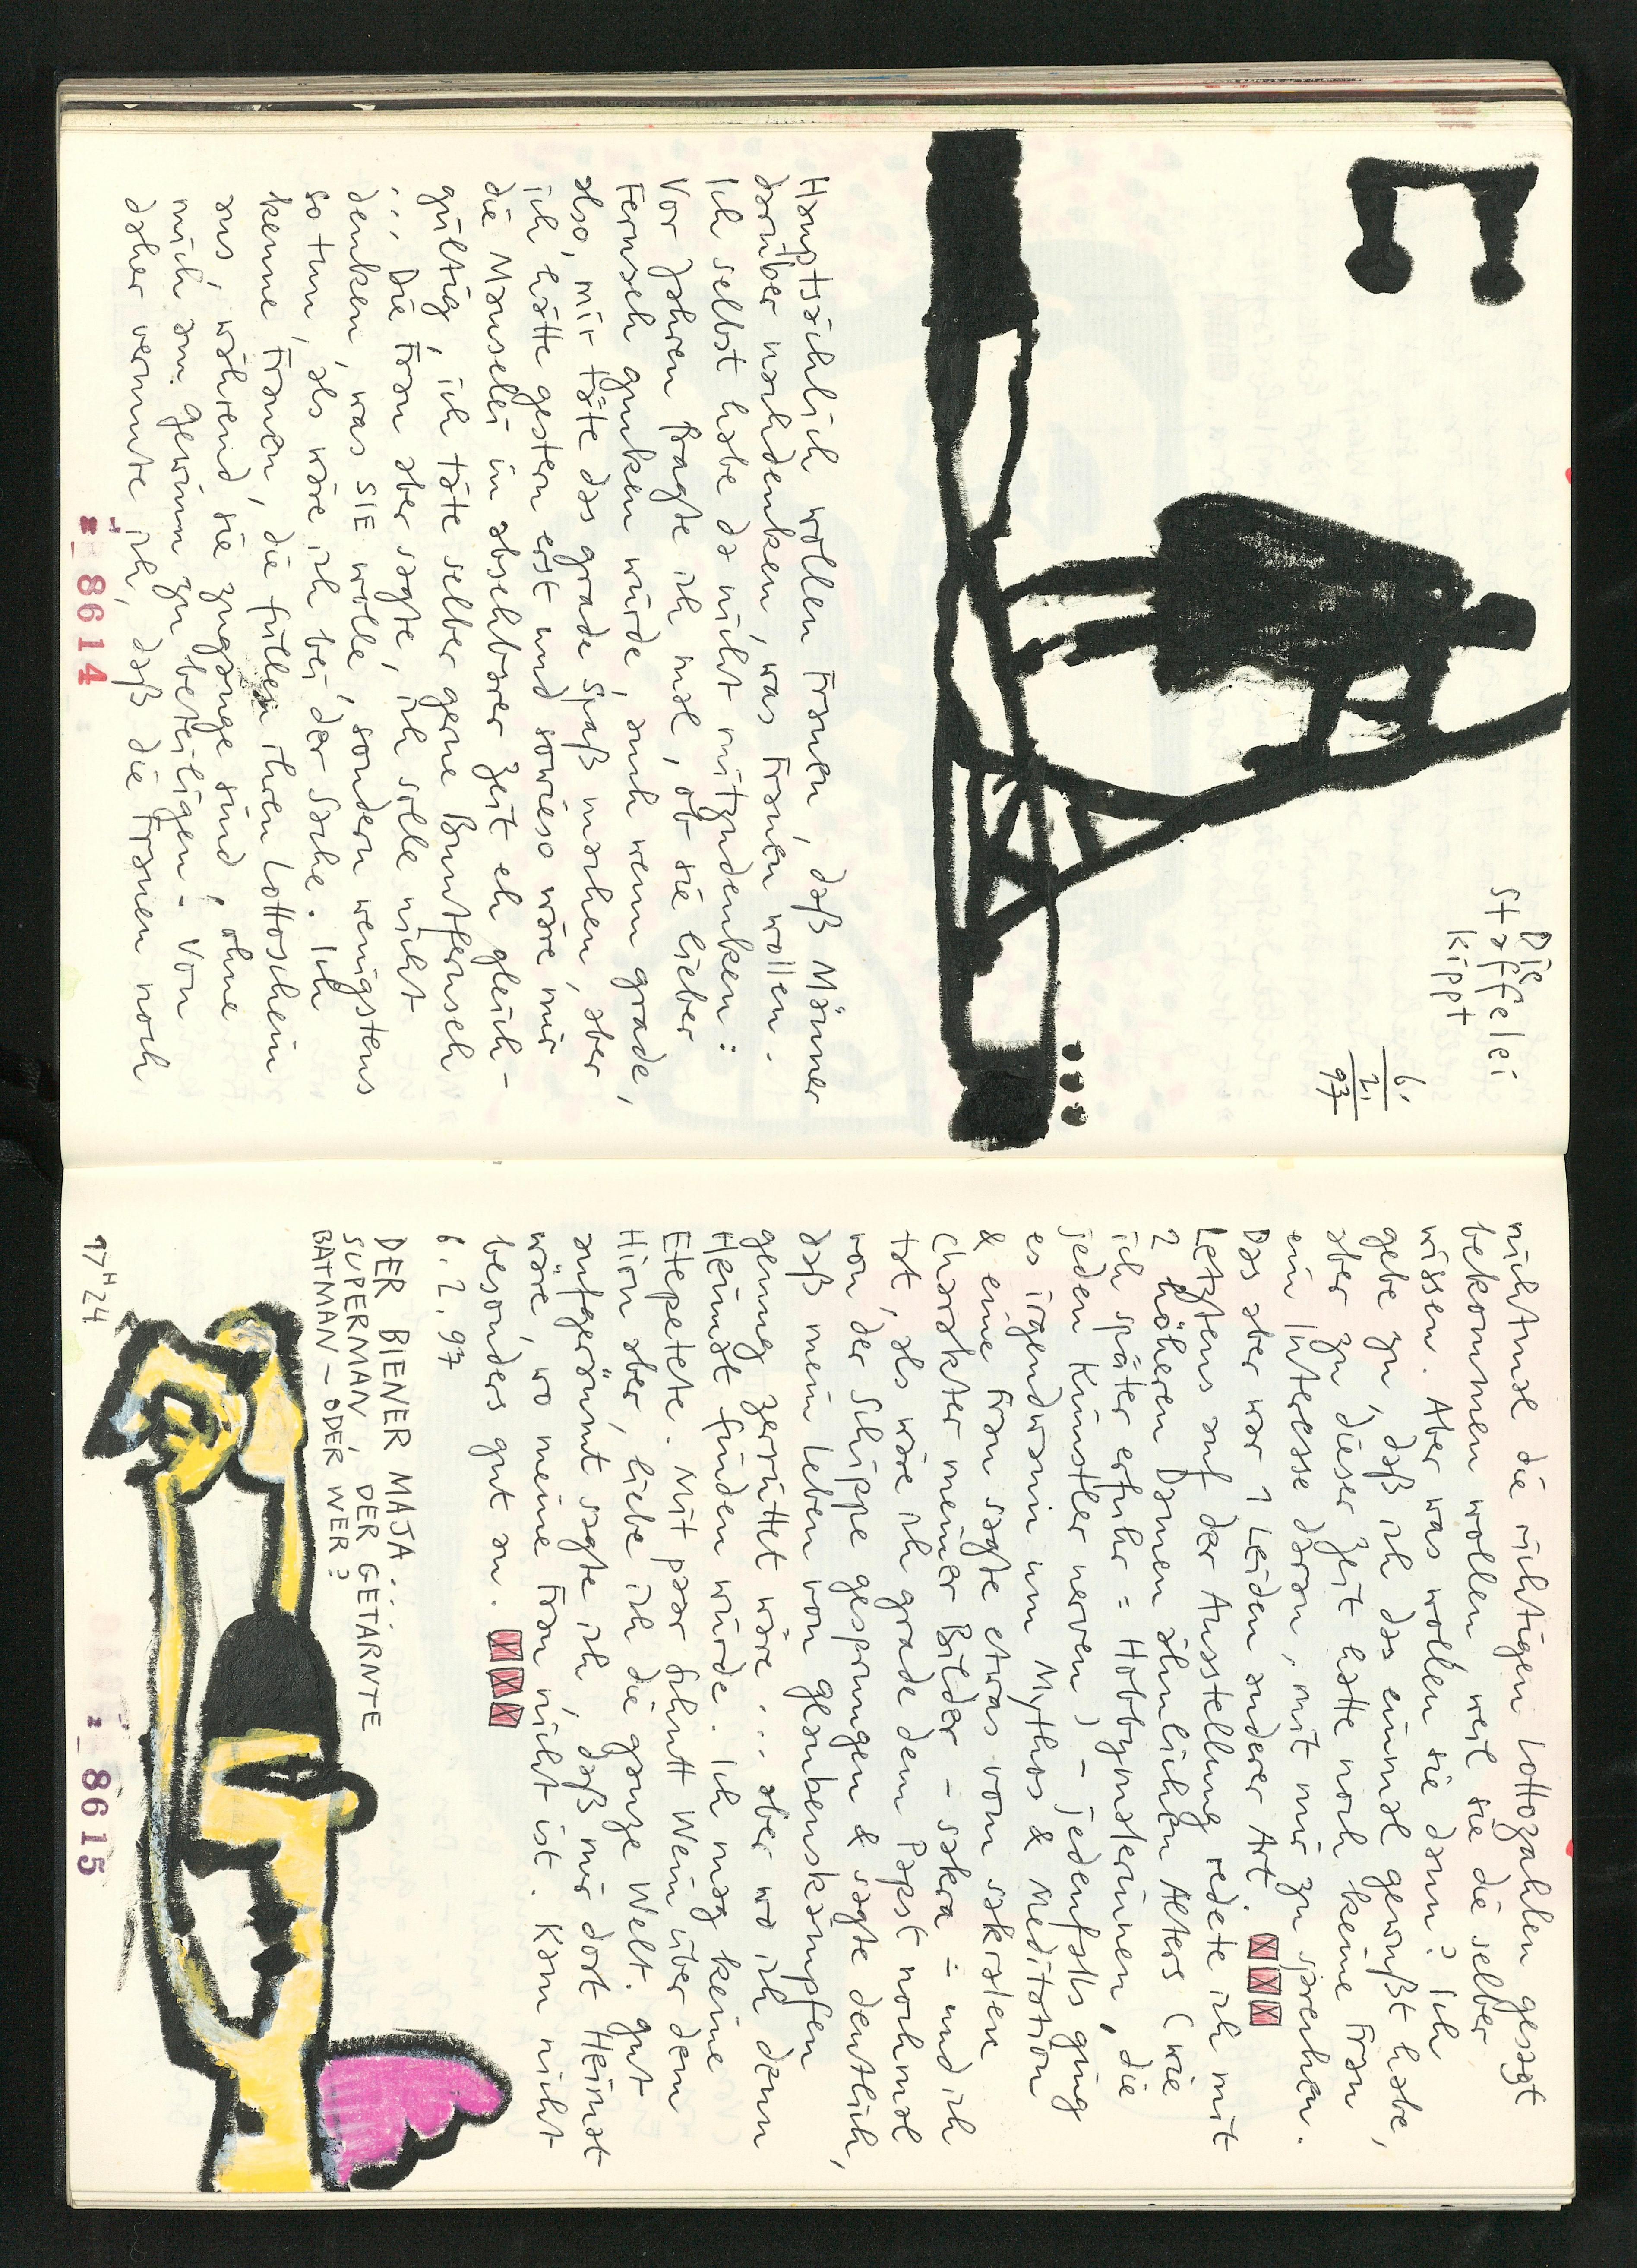 Die
Staffelei
kippt
6.
2.
97
Hauptsächlich wollen Frauen, daß Männer
darüber nachdenken, was Frauen wollen.
Ich selbst habe da nicht mitzudenken:
Vor Jahren fragte ich mal, ob sie lieber
Fernseh gunken würde, auch wenn grade,
also, mir täte das grade Spaß machen, aber
ich hätte gestern erst und sowieso wäre mir
die Mauselei in absehbarer Zeit eh gleich-
gültig, ich täte selber gerne Buntfernseh
... Die Frau aber sagte, ich solle nicht
denken, was SIE wolle, sondern wenigstens
so tun, als wäre ich bei der Sache. Ich
kenne Frauen, die füllen ihren Lottoschein
aus, während sie zugange sind, ohne
mich am Gewinn zu beteiligen - Von
daher vermute ich, daß die Frauen noch
2_8614
nichtmal die richtigen Lottozahlen gesagt
bekommen wollen, weil sie die selber
wissen. Aber was wollen sie dann? Ich
gebe zu, daß ich das einmal gewußt habe,
aber zu dieser Zeit hatte noch keine Frau
ein Interesse daran, mit mir zu sprechen.
Das aber war 1 Leiden anderer Art.
Letztens auf der Ausstellung redete ich mit
2 höheren Damen ähnlichen Alters (wie
ich später erfuhr = Hobbymalerinnen, die
jeden Künstler nerven) - jedenfalls ging
es irgendwann um Mythos & Meditation
& eine Frau sagte etwas vom sakralen
Charakter meiner Bilder - sakra = und ich
tat, als wäre ich grade dem Papst nochmal
von der Schippe gesprungen & sagte deutlich,
daß mein Leben von Glaubenskämpfen
genug zerrüttet wäre... aber wo ich denn
Heimat finden würde. Ich mag keine
Etepetete. Mit paar Schutt Wein über dem
Hirn aber, liebe ich die ganze Welt. Gut
aufgeräumt sagte ich, daß mir dort Heimat
wäre, wo meine Frau nicht ist. Kam nicht
besonders gut an.
6.2.97
DER BIENER MAJA...
SUPERMAN, DER GETARNTE
BATMAN - ODER WER?
17H24
2_8615